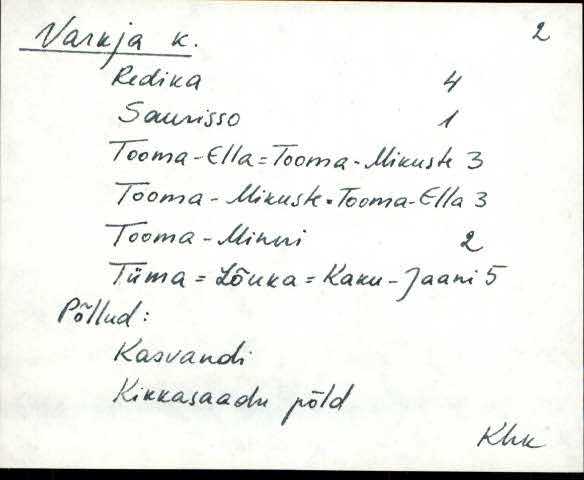 Varnja k. 2
Redika 4
Saurisso 1
Tooma-Ella = Tooma-Mikuste 3
Tooma-Mikuste = Tooma-Ella 3
Tooma-Mihkli 2
Tiima = Lõuka = Kaku-Jaani 5
Põllud:
Kasvandi
Kikkasaadu põld
Khk